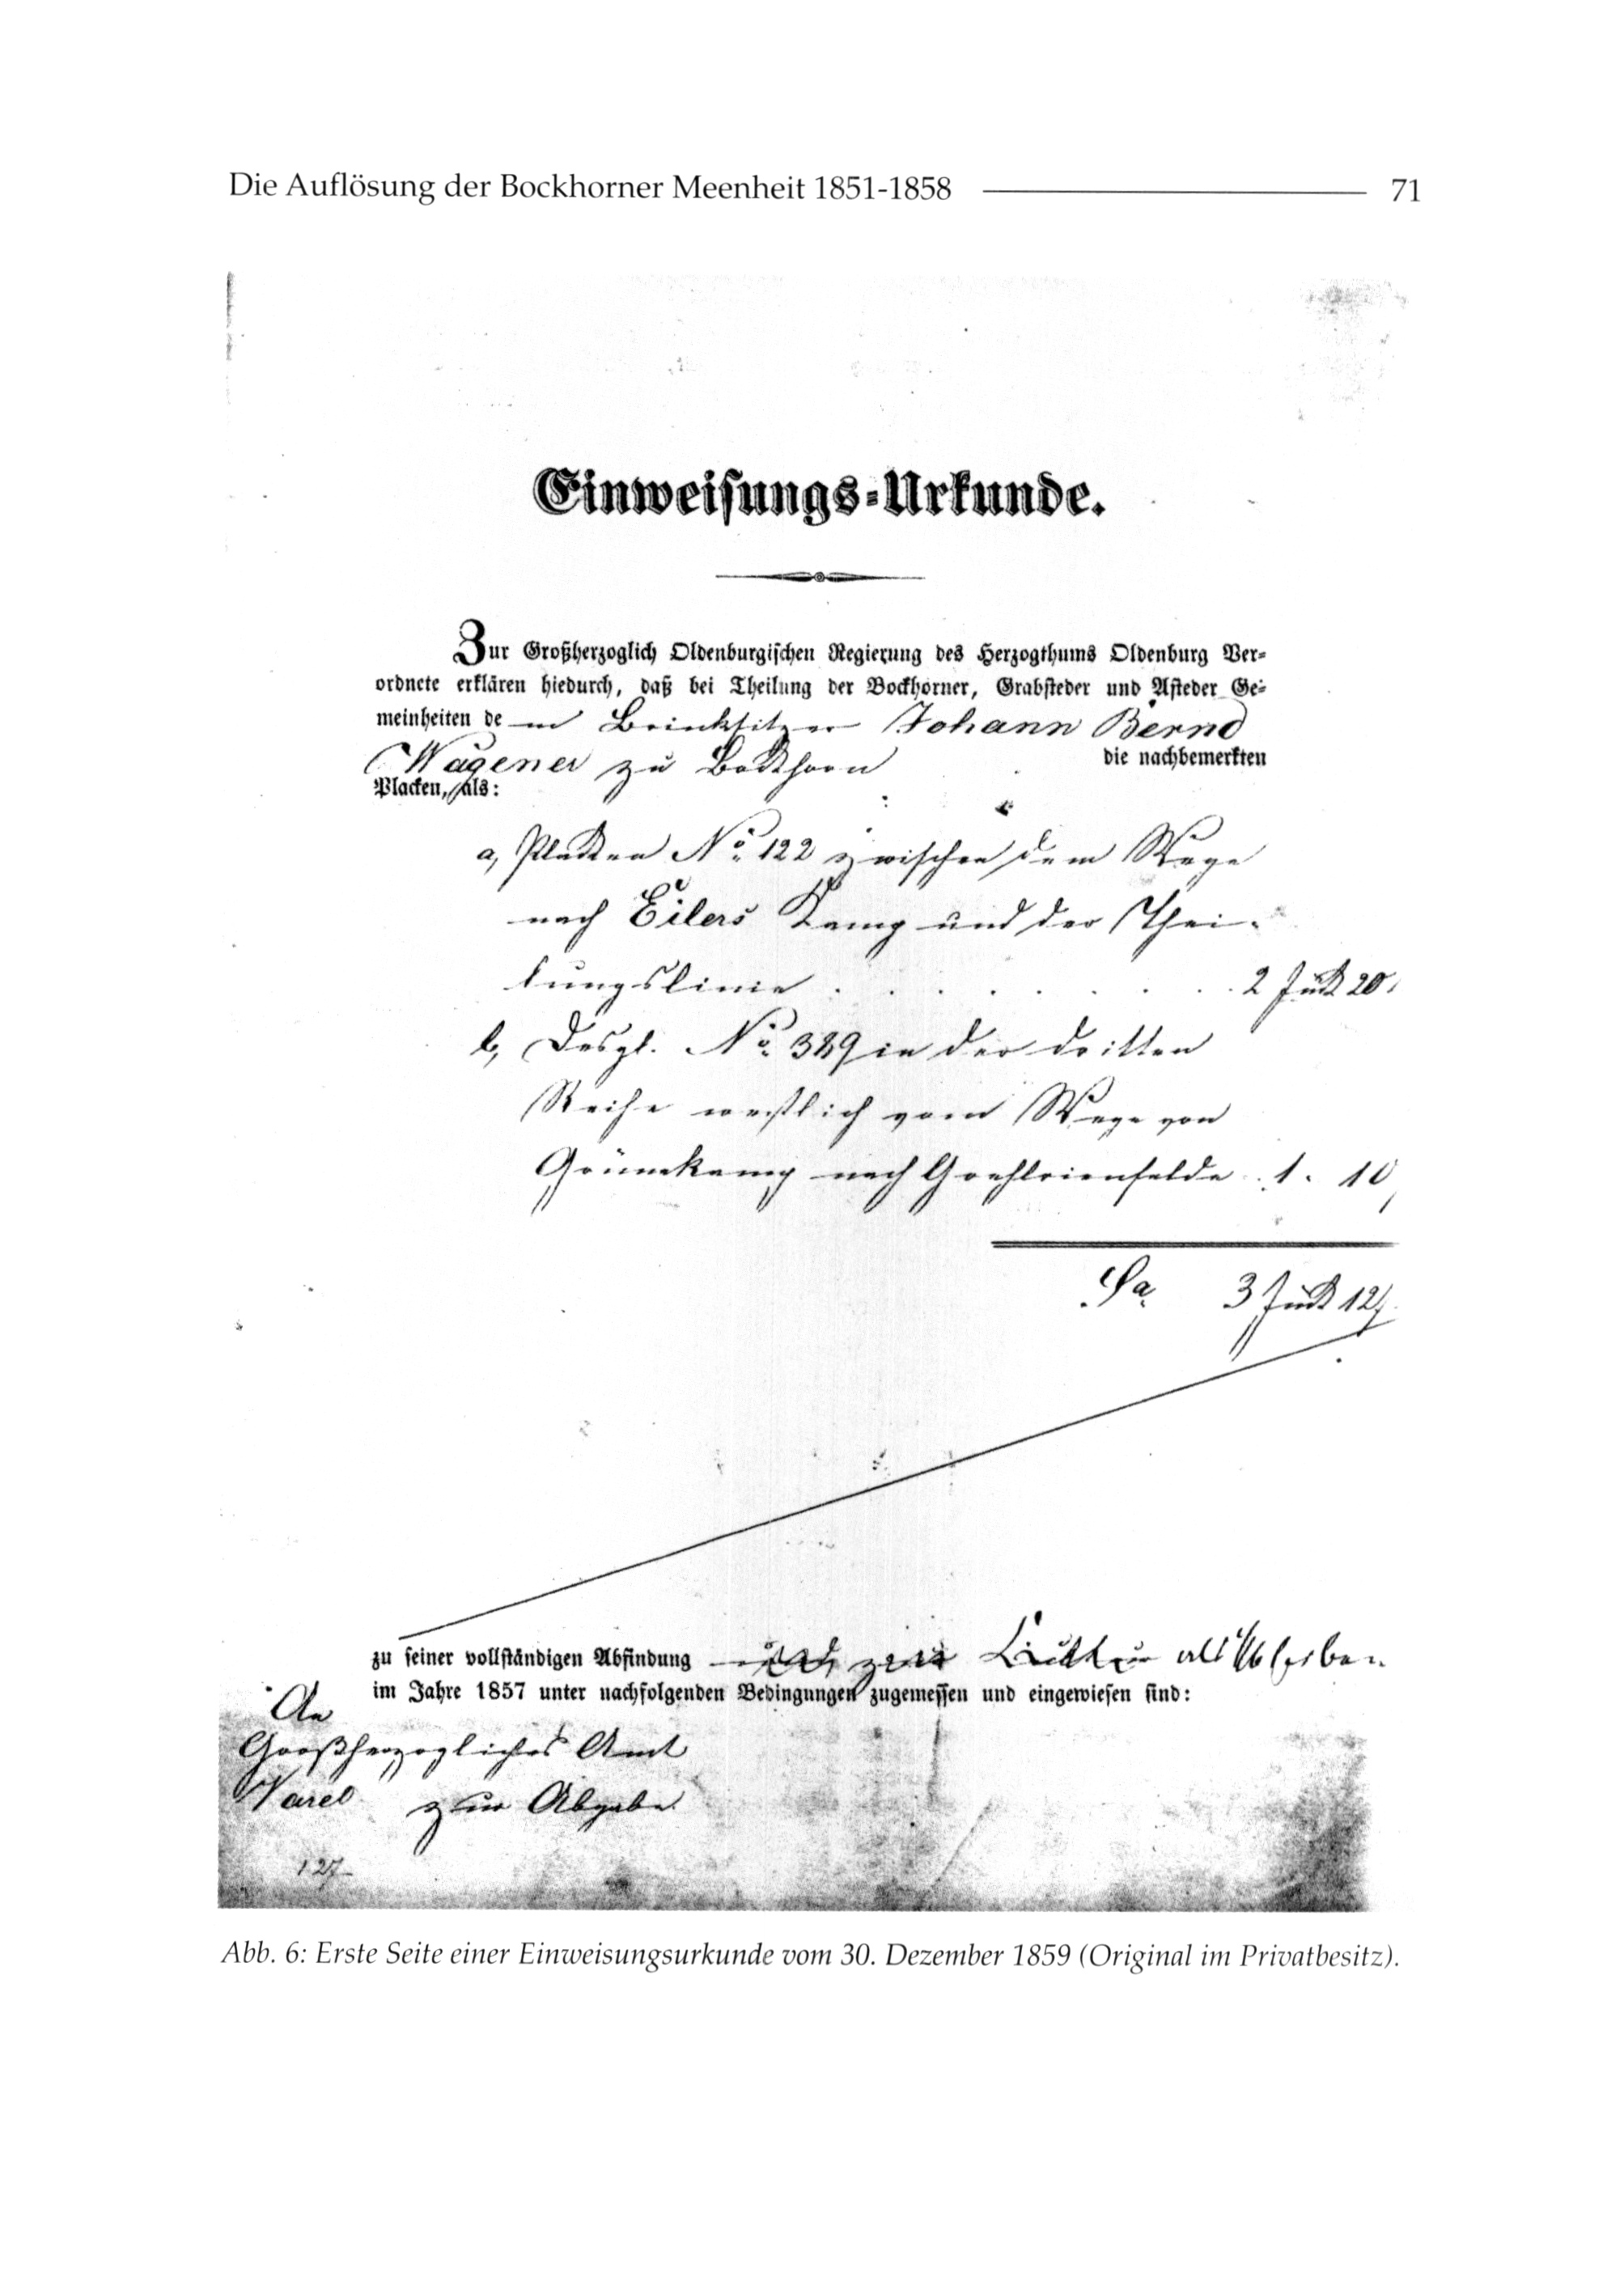 Die Auflösung der Bockhorner Meenheit 1851-1858 71
Einweisungs-Urkunde.
Zur Großherzoglich Oldenburgischen Regierung des Herzogthums Oldenburg Ver-
ordnete erklären hiedurch, daß bei Theilung der Bockhorner, Grabsteder und Asteder Ge-
meinheiten de m Brinksitzer Johann Bernd
Wagener zu Bockhorn die nachbemerkten
Placken, als:
a, Placken No. 122 zwischen dem Wege
nach Eilers Kamp und der Thei-
lungslinie . . . . . . . 2 Jück 20
b, Desgl. No. 389 in der dritten
Reihe westlich vom Wege von
Grünekamp nach . 1. 10
Sa. 3 Jück
zu seiner vollständigen Abfindung
im Jahre 1857 unter nachfolgenden Bedingungen zugemessen und eingewiesen sind:
An
Großherzogliches Amt
Varel zur Abgabe.
127
Abb. 6: Erste Seite einer Einweisungsurkunde vom 30. Dezember 1859 (Original im Privatbesitz).